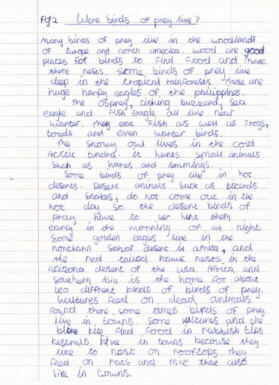 Pg 2 Were birds of prey live?
Many birds of prey live in the woodlands
of Europe and north america. wood are good
places for birds to find food and make
there nests. Some birds of prey live
deep in the tropical rainforests. These are
huge harpy eagles of the philippines.
The Osprey, fishing buzzard, sea
eagle and fish eagle all live near
water. They eat fish as well as frogs,
toads and even water birds.
The snowy owl lives in the cold
Arctic tundra, it hunts small animals
such as hares and lemming.
Some birds of prey live in hot
desert. Desert animals such as lizards
and snakes, do not come out in the
hot day so the desert birds of
prey have to hunt them
early in the morning or at night
Some golden eagles live in the
desert
and
the red tailed hawk nests in the
Arizona desert of the usa. Africa and
southern asia is the home for about
different kinds of birds of prey.
Vultures feed on dead animals
found there some birds of prey
live in towns. Some vultures and the
black kite find food in rubbish tips
kestrels live in towns because they
like to nest on rooftops they
feed on rats and mice that also
live in towns.